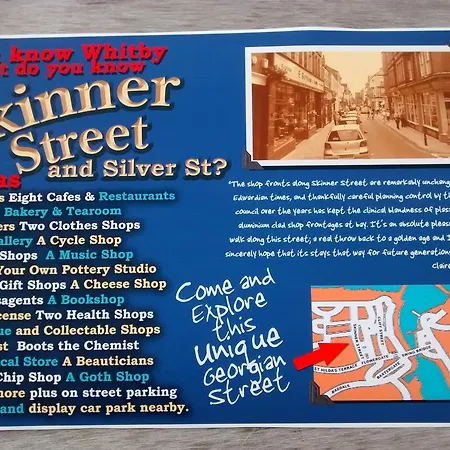 know Whitby
t do you know
kinner
Street
and Silver St?
ns
s Eight Cafes & Restaurants
Bakery & Tearoom
ers Two Clothes Shops
allery A Cycle Shop
Shops A Music Shop
Your Own Pottery Studio
Gift Shops A Cheese Shop
sagents A Bookshop
cense Two Health Shops
ue and Collectable Shops
st Boots the Chemist
cal Store A Beauticians
Chip Shop A Goth Shop
more plus on street parking
and display car park nearby.
"The shop fronts along Skinner Street are remarkably unchang
Edwardian times, and thankfully careful planning control by th
council over the years has kept the clinical blandness of plas
aluminium clad shop frontages at bay. It's an absolute pleasu
walk along this street; a real throw back to a golden age and I
sincerely hope that its stays that way for future generations
Claire
Come and
Explore
this
Unique
Georgian
Street
SKINNER STREET
CLIFF STREET
ST HILDA'S TERRACE
FLOWERGATE
SWING BRIDGE
BAXTERGATE
BAGDALE